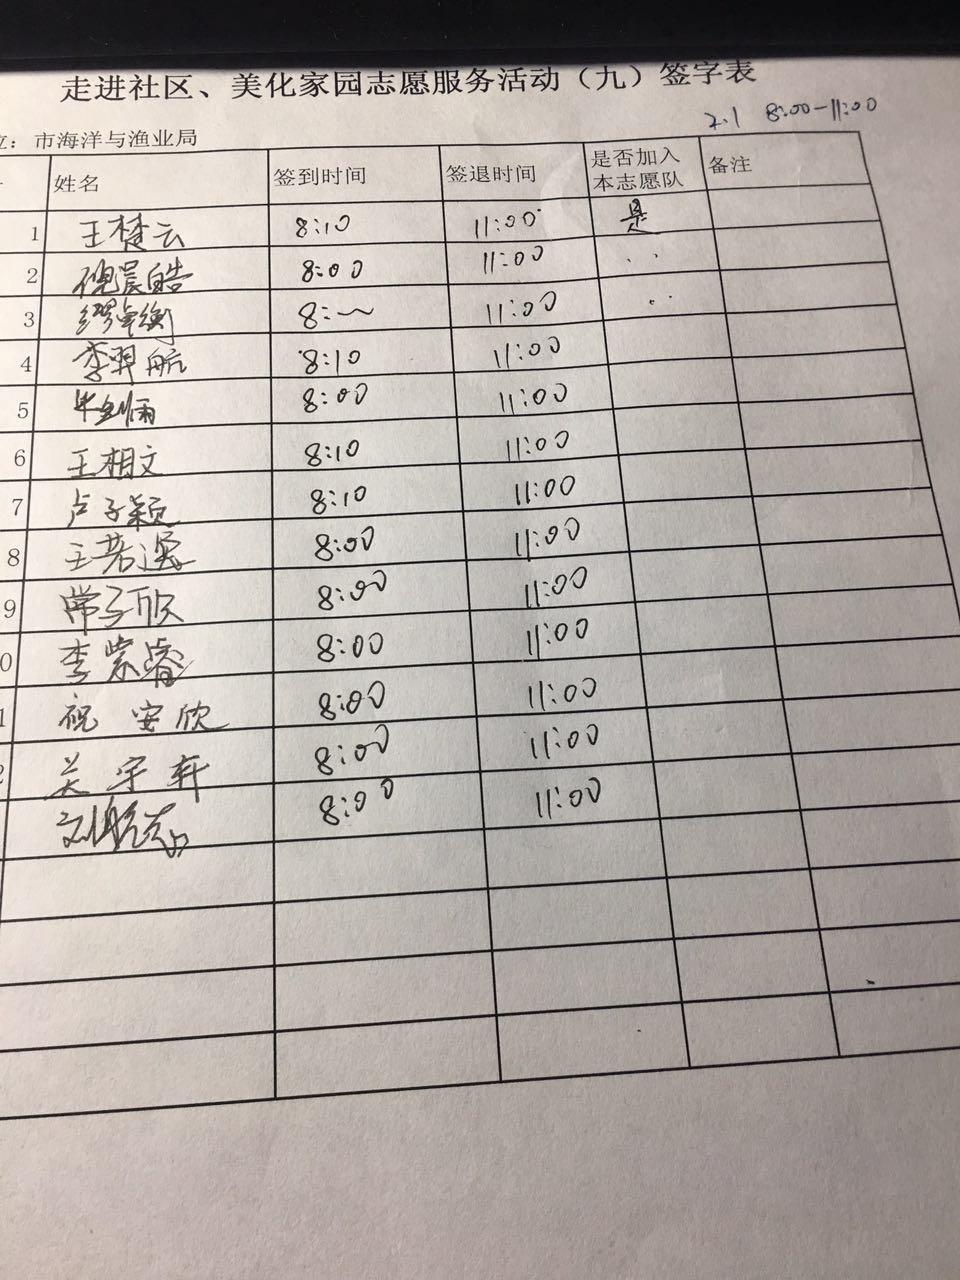 走进社区、美化家园志愿服务活动（九）签字表
2.1 8:00-11:00
位：市海洋与渔业局
姓名 签到时间 签退时间 是否加入本志愿队 备注
1 王楚云 8:10 11:00 是
2 倪晨皓 8:00 11:00
3 8: 11:00
4 李羿航 8:10 11:00
5 8:00 11:00
6 王相文 8:10 11:00
7 卢子颖 8:10 11:00
8 王若 8:00 11:00
9 常子欣 8:00 11:00
0 李紫睿 8:00 11:00
1 祝安欣 8:00 11:00
2 吴宇轩 8:00 11:00
刘 8:00 11:00